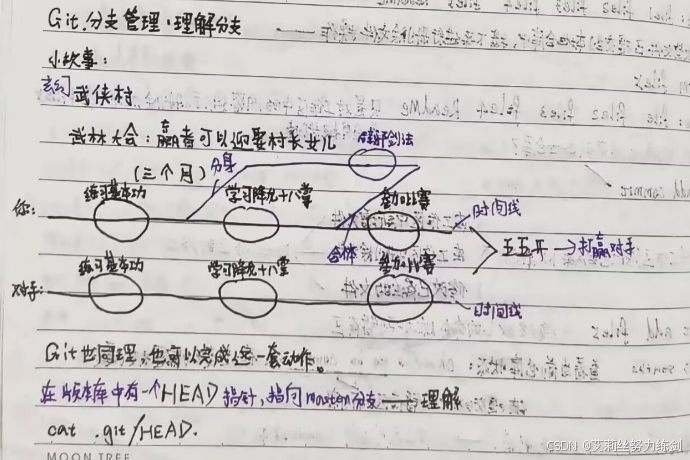 Git.分支管理·理解分支
小故事：
玄幻 武侠村
武林大会：赢者可以迎娶村长女儿
(三个月) 分身 剑法
练习基本功 学习降龙十八掌 参加比赛 时间线
你：
合体 五五开→打赢对手
练习基本功 学习降龙十八掌 参加比赛
对手： 时间线
Git也同理，也可以完成这一套动作。
在版本库中有一个HEAD指针，指向master分支——理解
cat .git/HEAD.
MOON TREE
CSDN @艾莉丝努力练剑